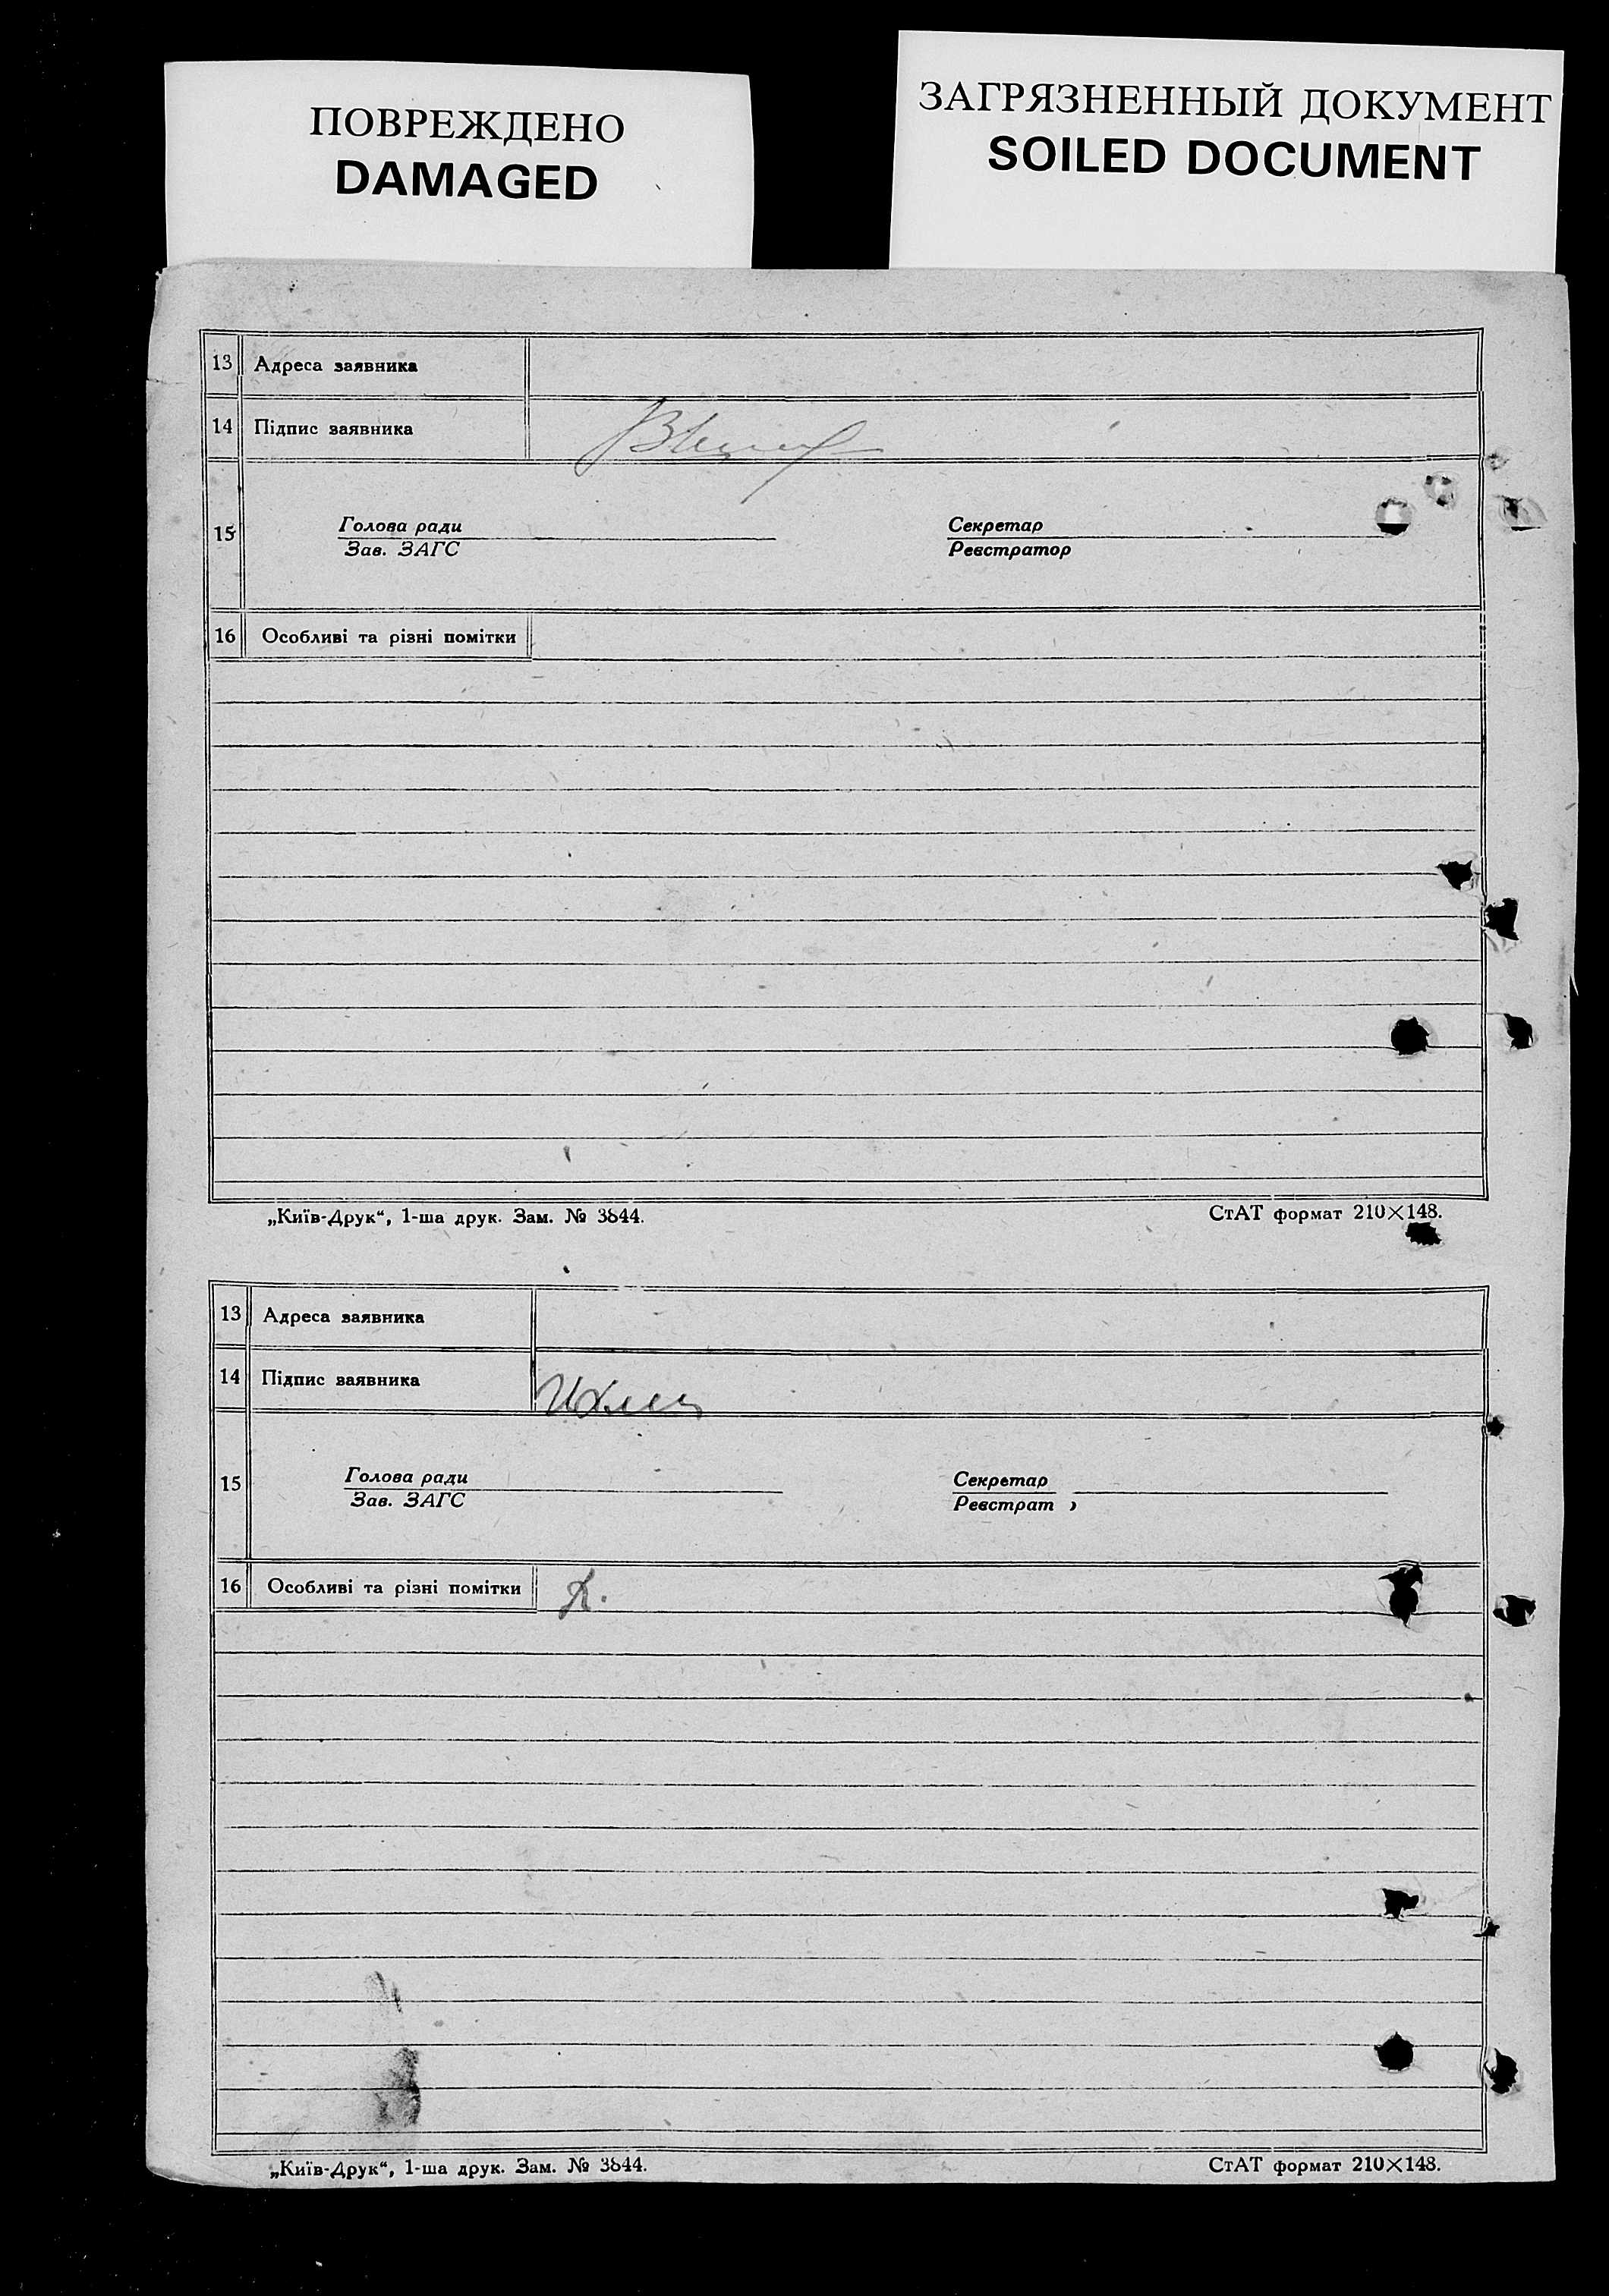 ПОВРЕЖДЕНО
DAMAGED
ЗАГРЯЗНЕННЫЙ ДОКУМЕНТ
SOILED DOCUMENT
13 Адреса заявника
14 Підпис заявника
15 Голова ради Секретар
Зав. ЗАГС Реєстратор
16 Особливі та різні помітки
„Київ-Друк“, 1-ша друк. Зам. № 3844. СтАТ формат 210×148.
13 Адреса заявника
14 Підпис заявника
15 Голова ради Секретар
Зав. ЗАГС Реєстрат
16 Особливі та різні помітки
„Київ-Друк“, 1-ша друк. Зам. № 3844. СтАТ формат 210×148.